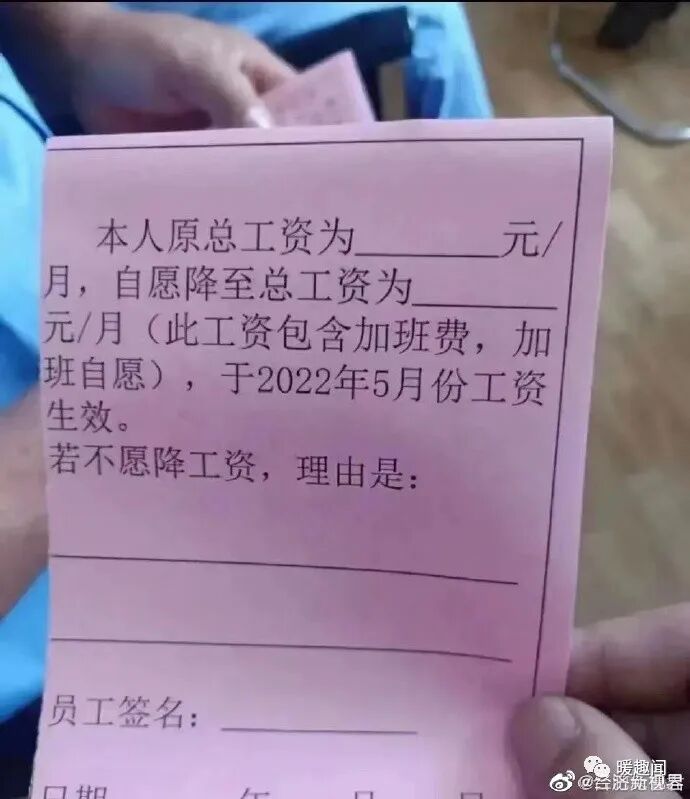 本人原总工资为_______元/
月，自愿降至总工资为_______
元/月（此工资包含加班费，加
班自愿），于2022年5月份工资
生效。
若不愿降工资，理由是：
员工签名：__________
日期 年 月 日
暖趣闻
@经济新视君